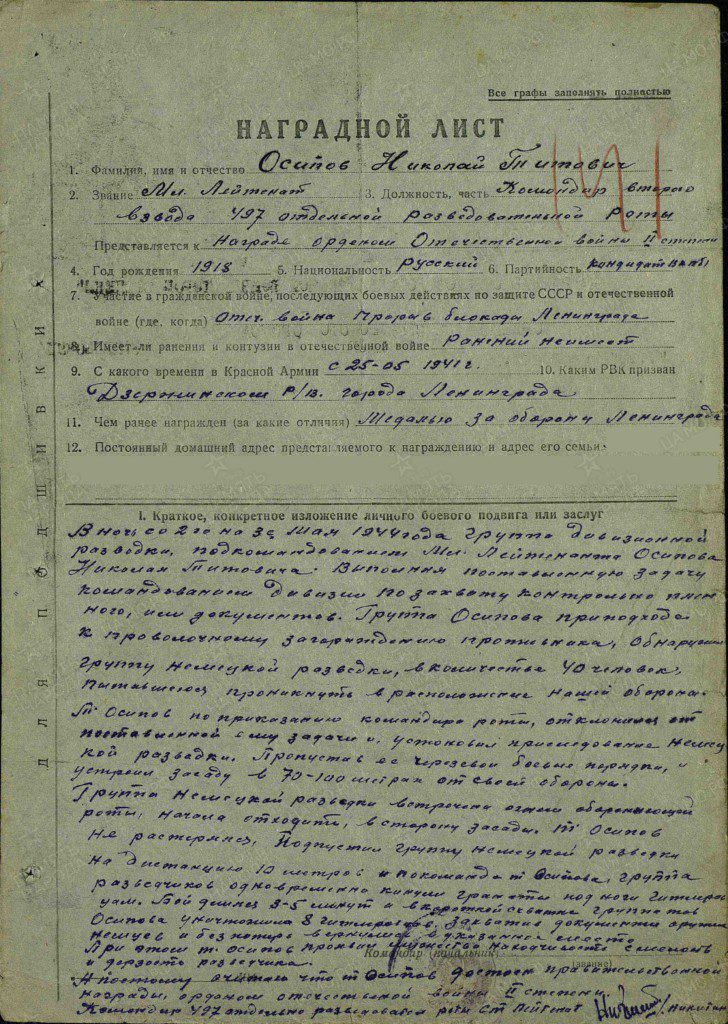 Все графы заполнять полностью
НАГРАДНОЙ ЛИСТ
1. Фамилия, имя и отчество Осипов Николай Титович
2. Звание Мл. Лейтенат 3. Должность, часть Командир второго
взвода 497 отдельной разведовательной роты
Представляется к Награде орденом Отечественной войны II степени
4. Год рождения 1918 5. Национальность Русский 6. Партийность кандидат ВКПб)
7. Участие в гражданской войне, последующих боевых действиях по защите СССР и отечественной
войне (где, когда) Отеч. война Прорыв блокады Ленинграда
8. Имеет ли ранения и контузии в отечественной войне Ранений неимеет
9. С какого времени в Красной Армии с 25-05 1941г. 10. Каким РВК призван
Дзержинским Р/в. города Ленинграда
11. Чем ранее награжден (за какие отличия) Медалью за оборону Ленинграда
12. Постоянный домашний адрес представляемого к награждению и адрес его семьи:
I. Краткое, конкретное изложение личного боевого подвига или заслуг
В ночь со 2го на 3е Мая 1944 года группа дивизионной
разведки, подкомандованием Мл. Лейтенанта Осипова
Николая Титовича. Выполняя поставленную задачу
командованием дивизии по захвату контрольно плен
ного, или документов. Группа Осипова приподходе
к проволочному заграждению противника, Обнаружила
группу немецкой разведки, вколичества 40 человек,
пытавшеюся проникнуть врасположение нашей обороны.
Т. Осипов поприказанию командира роты, отклонился от
поставленной ему задачи и установил приследование немец
кой разведки. Пропустив ее черезсвои боевые порядки, и
устроил засаду в 70-100 метрах отсвоей обороны.
Группа немецкой разведки встречена огнем обороняющей
роты, начала отходить, в сторону засады. т Осипов
не растерялся, Подпустил группу немецкой разведки
на дистанцию 10 метров и покоманде т Осипова, группа
разведчиков одновременно кинули гранаты под ноги гитлеров
цам. Бой длился 3-5 минут и вкороткой схватке группа тов
Осипова уничтожила 8 гитлеровцев, захватив документы оружие
немцев и безпотерь вернулись в указанное место
При этом т. Осипов проявил мужество находчивость смелость
и дерзость разведчика.
Командир (начальник)
(звание)
А поэтому считаю что т Осипов достоен правительственной
награды, орденом отечественной войны II степени.
Командир 497 отдельно разведовательн роты Ст Лейтенат /Никитин
ДЛЯ ПОДШИВКИ